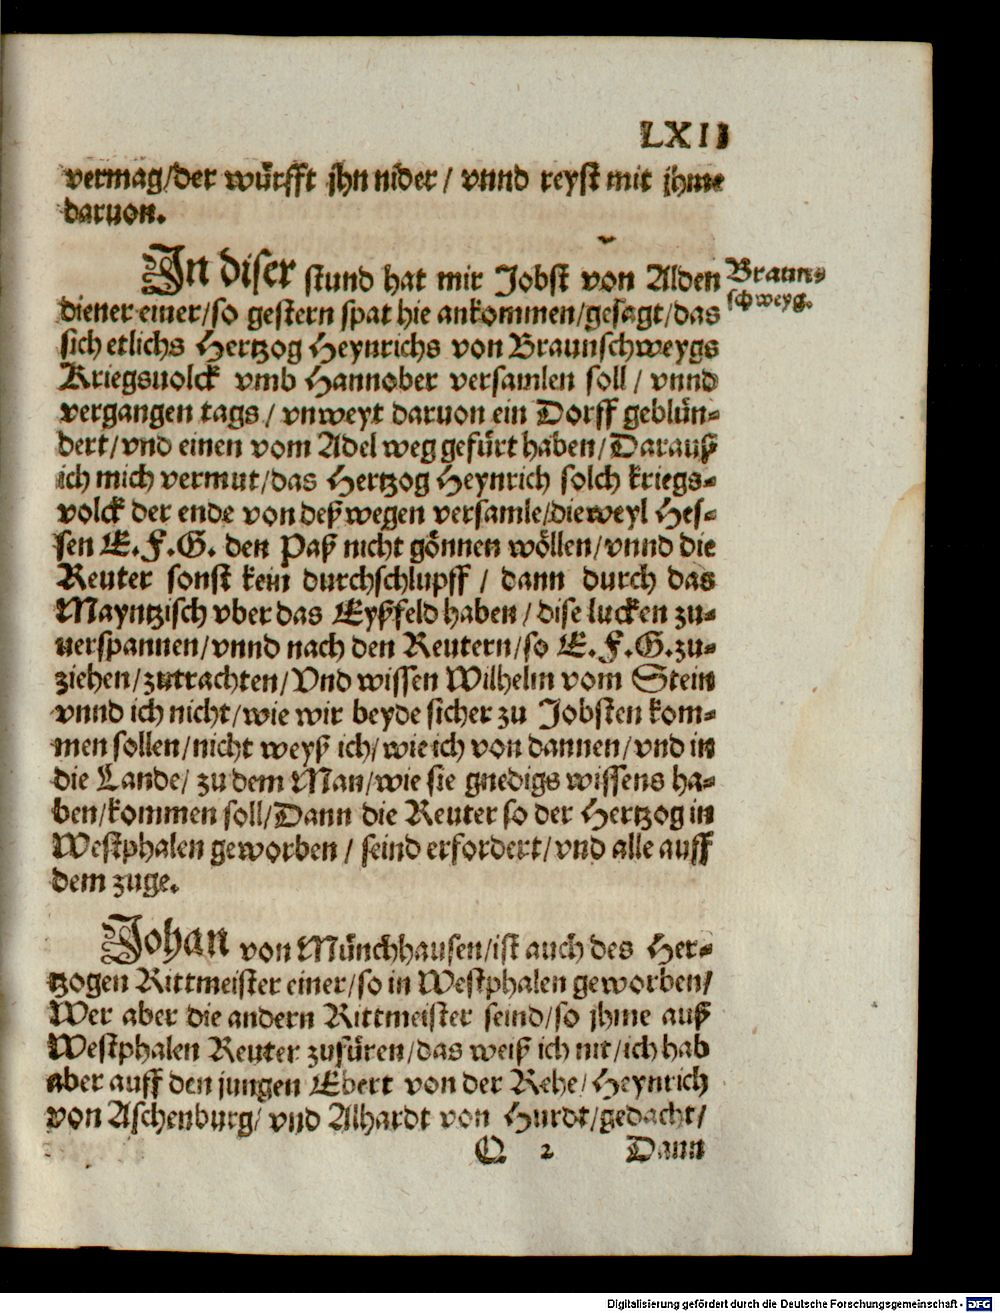 LXII
vermag/der würfft jhn nider / vnnd reyst mit jhme
daruon.
In diser stund hat mir Jobst von Alden
Braun-
schweyg.
diener einer/so gestern spat hie ankommen/gesagt/das
sich etlichs Hertzog Heynrichs von Braunschweygs
Kriegsuolck vmb Hannober versamlen soll / vnnd
vergangen tags / vnweyt daruon ein Dorff geblün-
dert/vnd einen vom Adel weg gefürt haben/Darauß
ich mich vermut/das Hertzog Heynrich solch kriegs-
volck der ende von deß wegen versamle/dieweyl Hes-
sen E.F.G. den Paß nicht gönnen wöllen/vnnd die
Reuter sonst kein durchschlupff / dann durch das
Mayntzisch vber das Eyßfeld haben / dise lucken zu-
uerspannen/vnnd nach den Reutern/so E.F.G.zu-
ziehen/zutrachten/Vnd wissen Wilhelm vom Stein
vnnd ich nicht/wie wir beyde sicher zu Jobsten kom-
men sollen/nicht weyß ich/wie ich von dannen/vnd in
die Lande/ zu dem Man/wie sie gnedigs wissens ha-
ben/kommen soll/Dann die Reuter so der Hertzog in
Westphalen geworben / seind erfordert/vnd alle auff
dem zuge.
Johan von Münchhausen/ist auch des Her-
tzogen Rittmeister einer/so in Westphalen geworben/
Wer aber die andern Rittmeister seind/so jhme auß
Westphalen Reuter zufüren/das weiß ich nit/ich hab
aber auff den jungen Ebert von der Rehe/Heynrich
von Aschenburg/ vnd Alhardt von Hurdt/gedacht/
Q 2 Dann
Digitalisierung gefördert durch die Deutsche Forschungsgemeinschaft - DFG